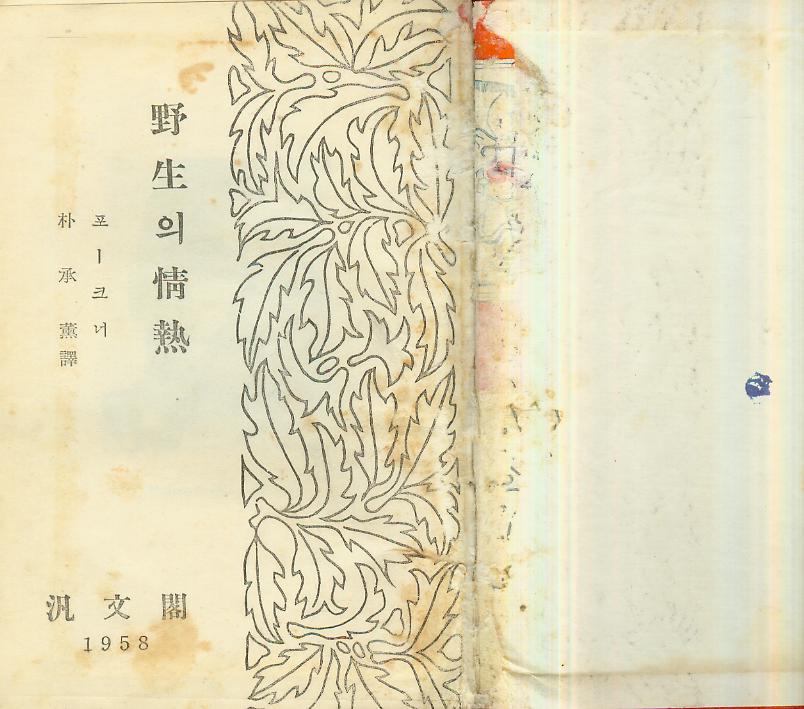 野生의情熱
포ー크너
朴承薰譯
汎文閣
1958